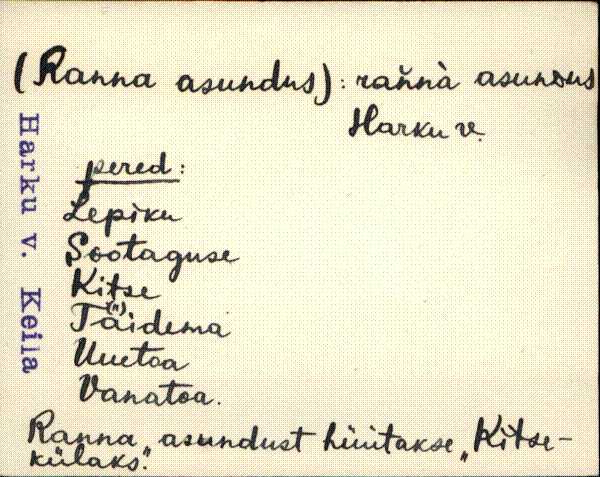 (Ranna asundus): rañnà asundus
Harku v.
Harku v. Keila
pered:
Lepiku
Sootaguse
Kitse
Ta(")idema
Uuetoa
Vanatoa.
Ranna asundust hüütakse „Kitse-
külaks".